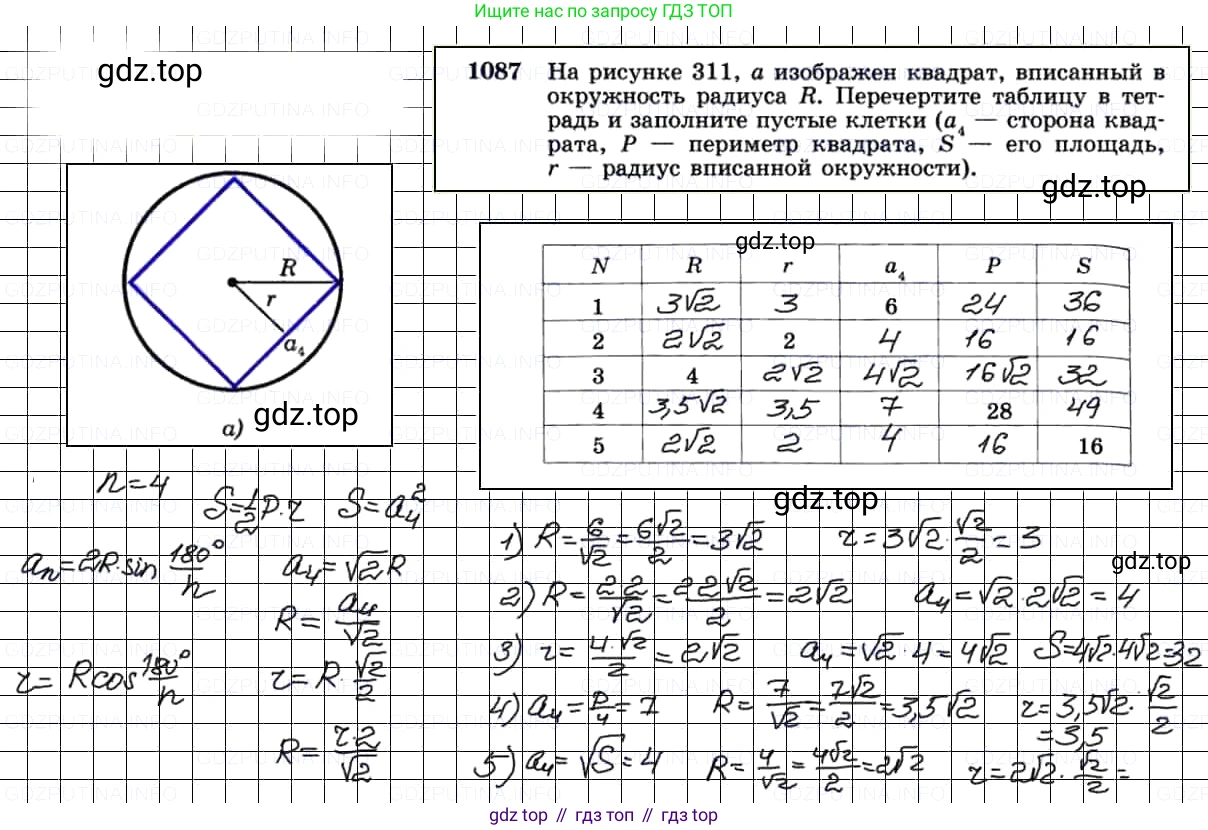 Ищите нас по запросу ГДЗ ТОП
gdz.top
1087 На рисунке 311, а изображен квадрат, вписанный в
окружность радиуса R. Перечертите таблицу в тет-
радь и заполните пустые клетки (a₄ — сторона квад-
рата, P — периметр квадрата, S — его площадь,
r — радиус вписанной окружности).
gdz.top
R
r
a₄
а)
gdz.top
gdz.top
N R r a₄ P S
1 3√2 3 6 24 36
2 2√2 2 4 16 16
3 4 2√2 4√2 16√2 32
4 3,5√2 3,5 7 28 49
5 2√2 2 4 16 16
gdz.top
n=4
S=1/2 P·r S=a₄²
aₙ=2R·sin 180°/n a₄=√2R
R=a₄/√2
r=Rcos 180°/n r=R·√2/2
R=r·2/√2
1) R=6/√2=6√2/2=3√2 r=3√2·√2/2=3
gdz.top
2) R=2·2/√2=2·2√2/2=2√2 a₄=√2·2√2=4
3) r=4·√2/2=2√2 a₄=√2·4=4√2 S=4√2·4√2=32
4) a₄=P/4=7 R=7/√2=7√2/2=3,5√2 r=3,5√2·√2/2
=3,5
5) a₄=√S=4 R=4/√2=4√2/2=2√2 r=2√2·√2/2=
gdz.top // гдз топ // gdz.top